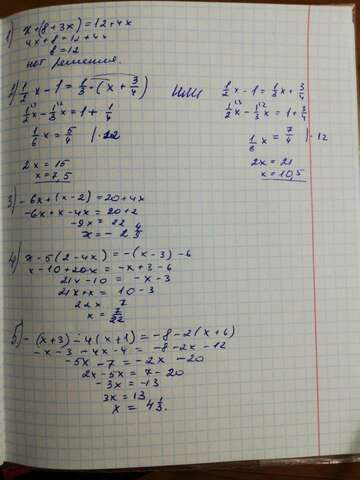 1) x+(8+3x)=12+4x
4x+8=12+4x
8=12
нет решения.
2) 1/2 x - 1 = 1/3 · (x + 3/4) или 1/2 x - 1 = 1/3 x + 3/4
1/2 x - 1/3 x = 1 + 1/4 1/2 x - 1/3 x = 1 + 3/4
1/6 x = 5/4 | · 12 1/6 x = 7/4 | · 12
2x = 15 2x = 21
x = 7,5 x = 10,5
3) -6x+(x-2)=20+4x
-6x+x-4x=20+2
-9x = 22
x = -2 4/9
4) x-5(2-4x)=-(x-3)-6
x-10+20x = -x+3-6
21x-10 = -x-3
21x+x = 10-3
22x = 7
x = 7/22
5) -(x+3)-4(x+1)=-8-2(x+6)
-x-3-4x-4 = -8-2x-12
-5x-7 = -2x-20
2x-5x = 7-20
-3x = -13
3x = 13
x = 4 1/3.